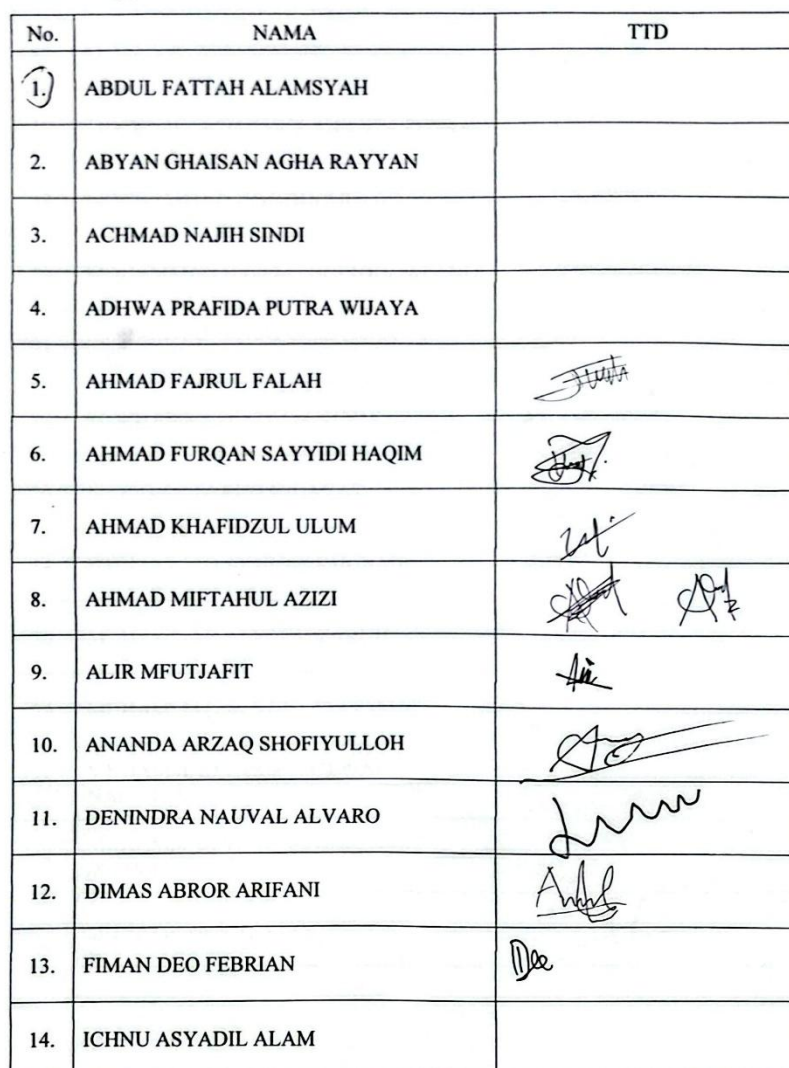 No. NAMA TTD
1. ABDUL FATTAH ALAMSYAH
2. ABYAN GHAISAN AGHA RAYYAN
3. ACHMAD NAJIH SINDI
4. ADHWA PRAFIDA PUTRA WIJAYA
5. AHMAD FAJRUL FALAH
6. AHMAD FURQAN SAYYIDI HAQIM
7. AHMAD KHAFIDZUL ULUM
8. AHMAD MIFTAHUL AZIZI
9. ALIR MFUTJAFIT
10. ANANDA ARZAQ SHOFIYULLOH
11. DENINDRA NAUVAL ALVARO
12. DIMAS ABROR ARIFANI
13. FIMAN DEO FEBRIAN
14. ICHNU ASYADIL ALAM